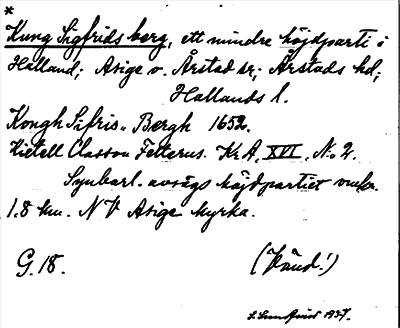 *
Kung Sigfrids berg, ett mindre höjdparti i
Halland; Asige o. Årstad sr; Årstads hd;
Hallands l.
Kongh Sifris Bergh 1652.
Kietell Classon Felterus. Kr.A. XVI, No 2.
Synbarl. avsågs höjdpartiet
1.8 km. NV Asige kyrka.
G. 18. (Känd!)
1937.